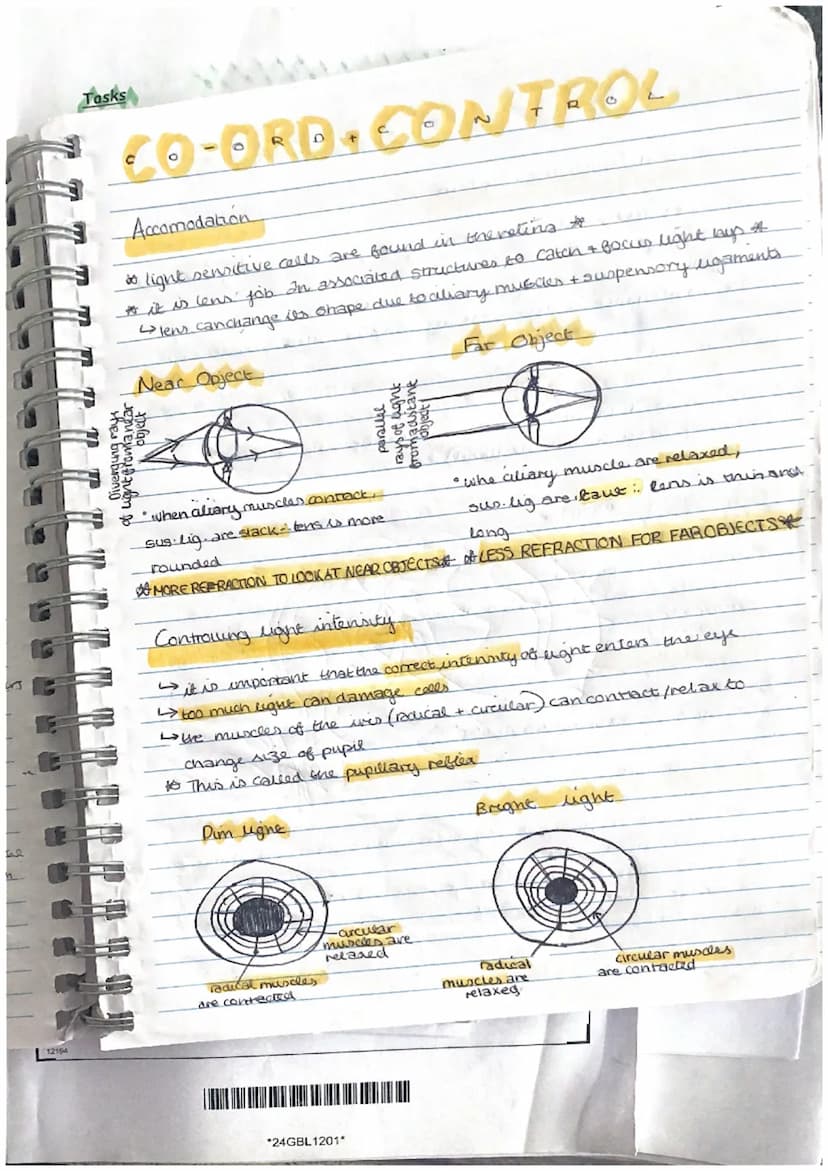 Tasks
CO-ORD + CONTROL
Accomodation
* light sensitive cells are found in the retina *
* it is lens' job an associated structures to catch + focus light rays *
↳ lens can change its shape due to ciliary muscles + suspensory ligaments
Near Object
Diverging rays
of light from a near
object
• when ciliary muscles contract,
sus. lig. are slack ∴ lens is more
rounded
* MORE REFRACTION TO LOOK AT NEAR OBJECTS *
Far Object
parallel
rays of light
from a distant
object
• whe ciliary muscle are relaxed,
sus. lig are taut ∴ lens is thin and
long
* LESS REFRACTION FOR FAR OBJECTS *
Controlling light intensity
↳ it is important that the correct intensity of light enters the eye
↳ too much light can damage cells
↳ the muscles of the iris (radical + circular) can contract/relax to
change size of pupil
* This is called the pupillary reflex
Dim light
circular
muscles are
relaxed
radical muscles
are contracted
Bright light
radical
muscles are
relaxed
circular muscles
are contacted
12164
*24GBL1201*